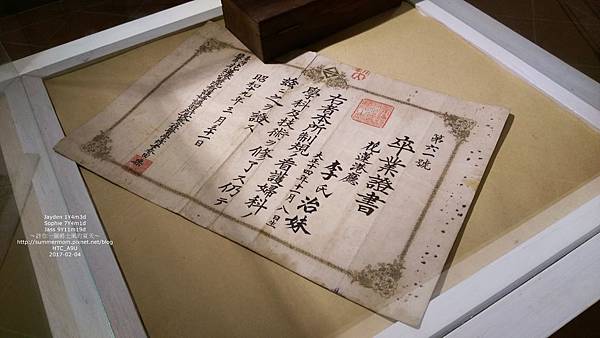 第六號
卒業證書
花蓮港廳
李氏治妹
大正四年十月八日生
右者本所制規看護婦科ノ
學科及技術ヲ修了ス仍テ
茲ニ之ヲ證ス
昭和九年三月三十一日
Jayden 1Y4m3d
Sophie 7Y4m1d
Jass 9Y11m19d
http://summermom.pixnet.net/blog
HTC_A9U
2017-02-04